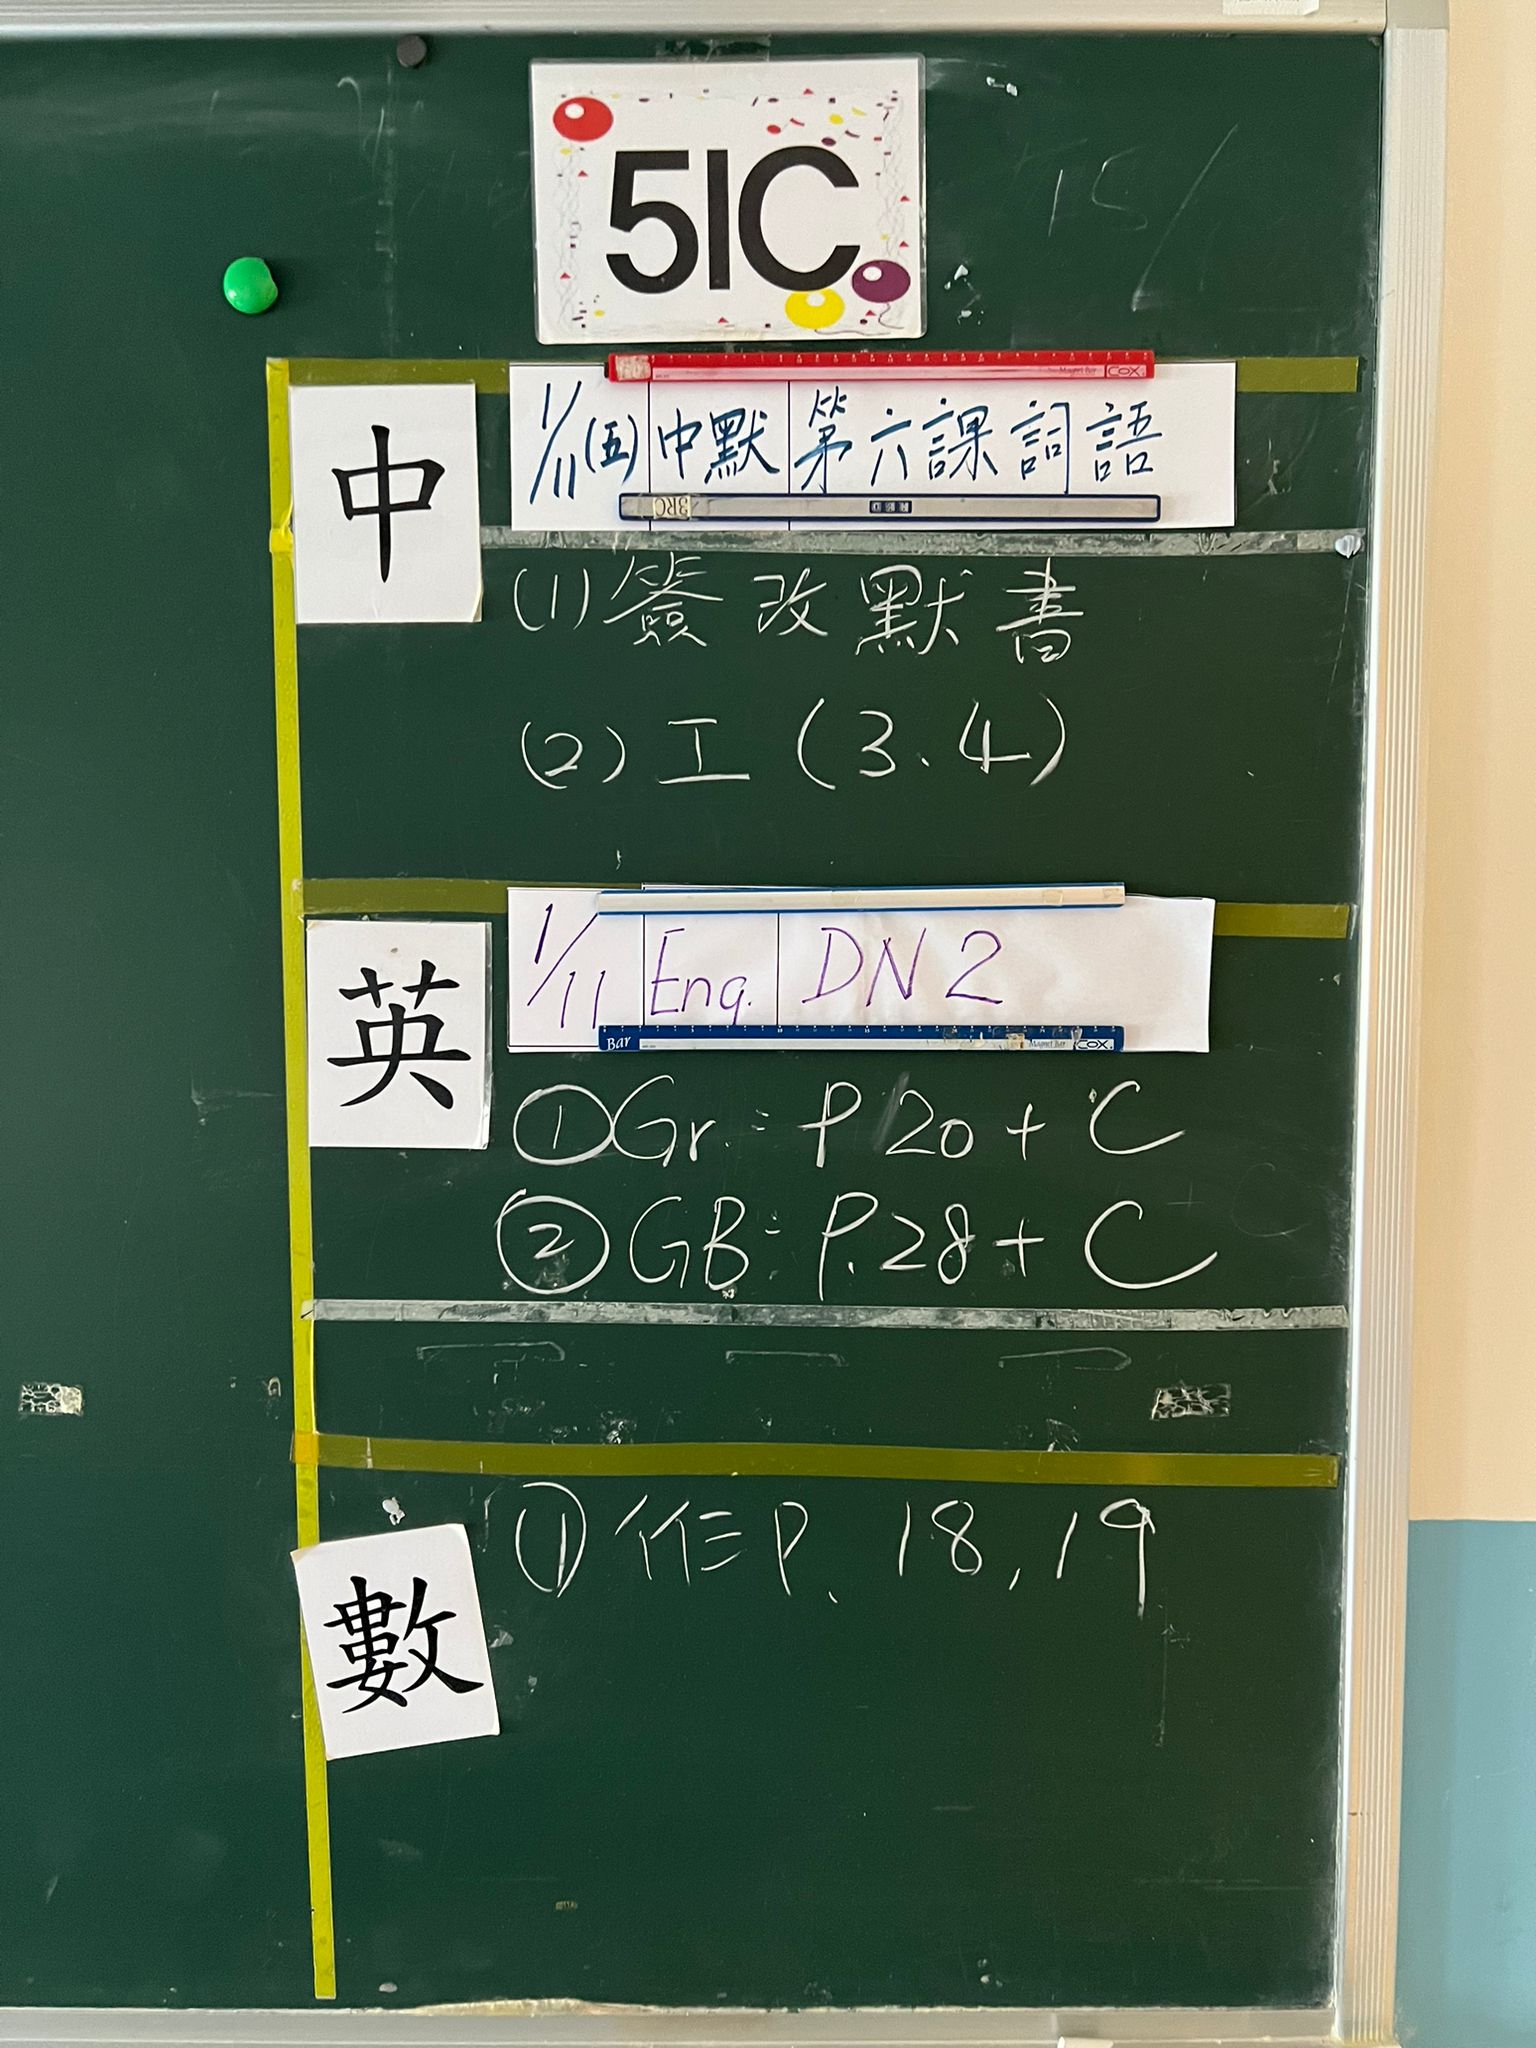 5IC
中
1/11(五) 中默 第六課詞語
(1) 簽改默書
(2) 工(3.4)
英
1/11 Eng. DN 2
① Gr: P 20 + C
② GB: P. 28 + C
數
① 作 P. 18, 19